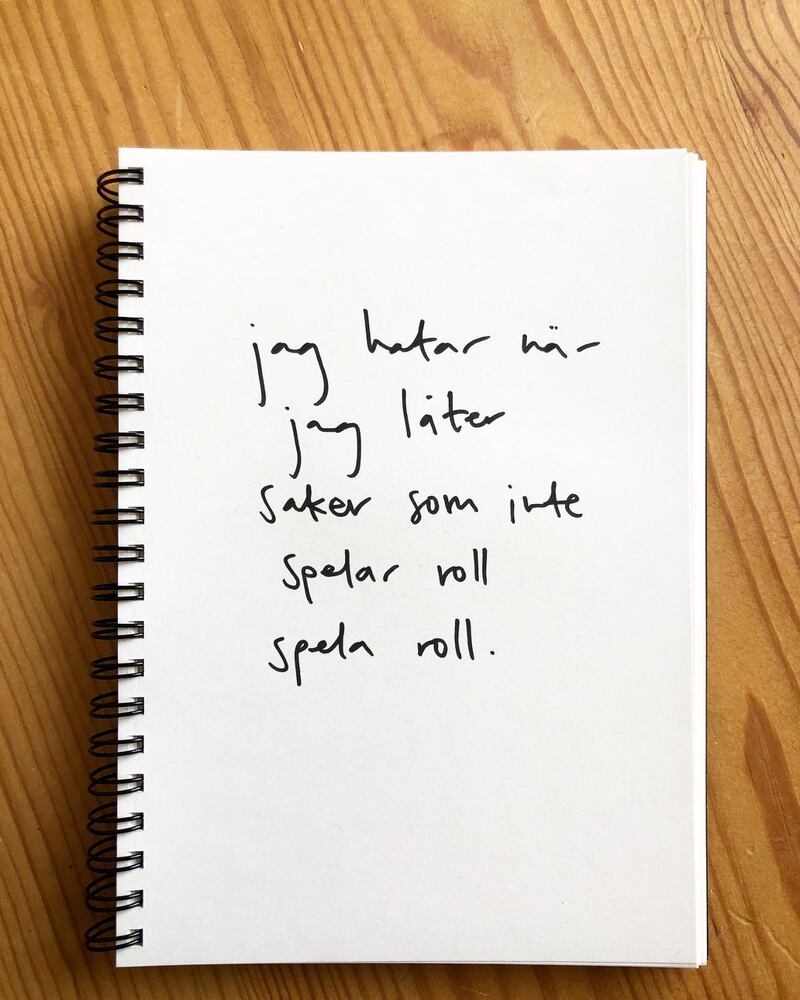 jag hatar när
jag låter
saker som inte
spelar roll
spela roll.